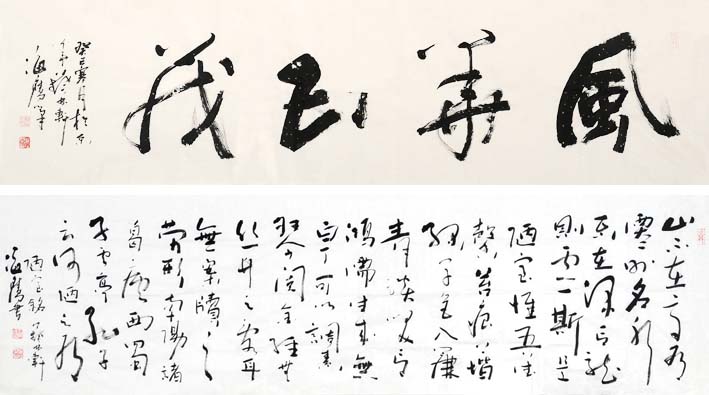 風華正茂
癸巳寒月於京
海鹰書
山不在高有
僊則名水
不在深有龍
則靈斯是
陋室惟吾德
馨苔痕階
緑草色入簾
青談笑有
鴻儒往來無
白丁可以調素
琴閱金經無
絲竹之亂耳
無案牘之
勞形南陽諸
葛廬西蜀
子雲亭孔子
云何陋之有
陋室銘
海鹰書